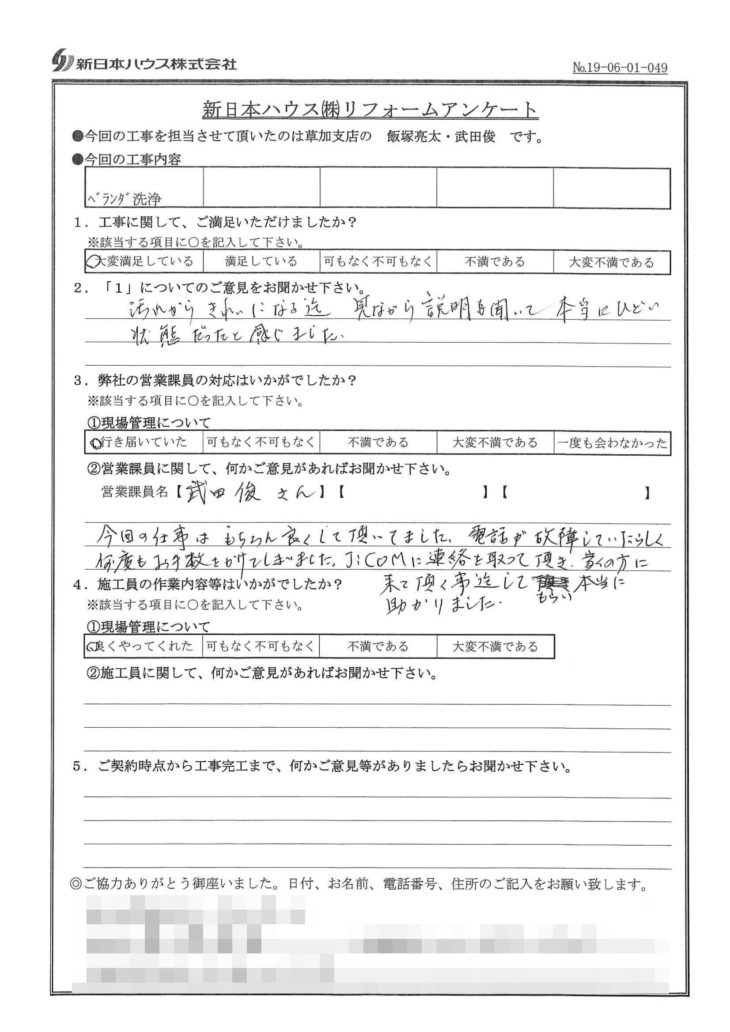 新日本ハウス株式会社
№19-06-01-049
新日本ハウス㈱リフォームアンケート
●今回の工事を担当させて頂いたのは草加支店の 飯塚亮太・武田俊 です。
●今回の工事内容
ﾍﾞﾗﾝﾀﾞ洗浄
1．工事に関して、ご満足いただけましたか？
※該当する項目に○を記入して下さい。
大変満足している 満足している 可もなく不可もなく 不満である 大変不満である
2．「1」についてのご意見をお聞かせ下さい。
汚れから きれいになる迄 見ながら説明を聞いて 本当にひどい
状態だったと感じました.
3．弊社の営業課員の対応はいかがでしたか？
※該当する項目に○を記入して下さい。
①現場管理について
行き届いていた 可もなく不可もなく 不満である 大変不満である 一度も会わなかった
②営業課員に関して、何かご意見があればお聞かせ下さい。
営業課員名【武田俊さん】【 】【 】
今回の仕事は もちろん良くして頂いてました. 電話が故障していたらしく
何度もお手数をかけてしまいました. J:COMに連絡を取って頂き.
の方に
4．施工員の作業内容等はいかがでしたか？
来て頂く事迄してもらい本当に
※該当する項目に○を記入して下さい。
助かりました.
①現場管理について
良くやってくれた 可もなく不可もなく 不満である 大変不満である
②施工員に関して、何かご意見があればお聞かせ下さい。
5．ご契約時点から工事完工まで、何かご意見等がありましたらお聞かせ下さい。
◎ご協力ありがとう御座いました。日付、お名前、電話番号、住所のご記入をお願い致します。